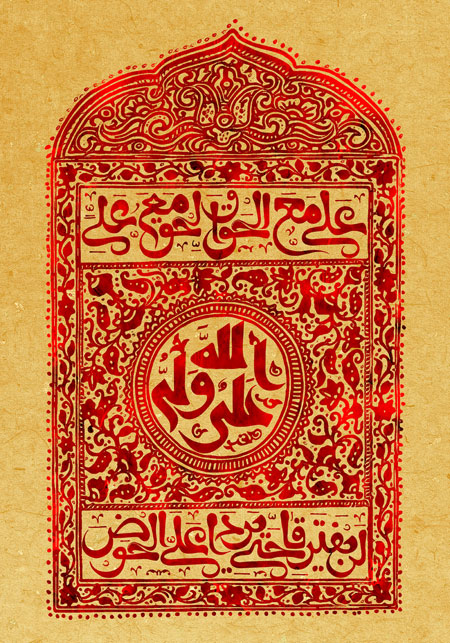 علي مع الحق و الحق مع علي
علي ولي الله
لن يفترقا حتى يردا على الحوض